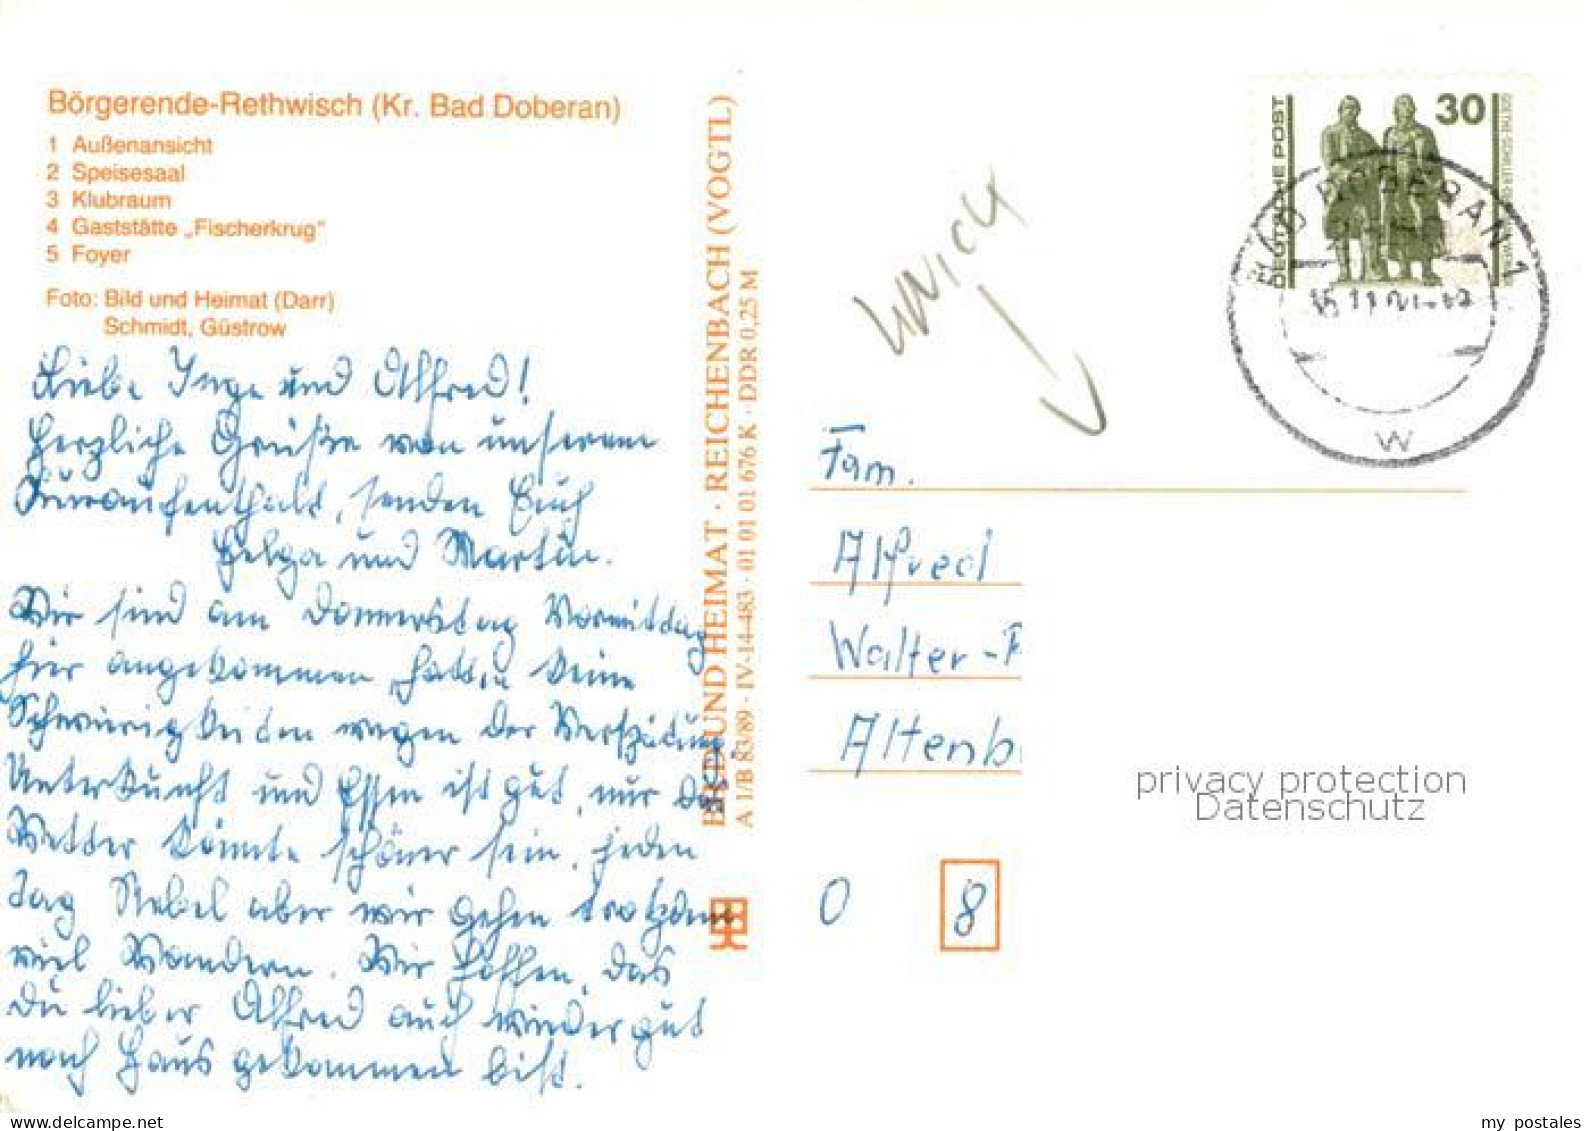 Börgerende-Rethwisch (Kr. Bad Doberan)
1 Außenansicht
2 Speisesaal
3 Klubraum
4 Gaststätte „Fischerkrug"
5 Foyer
Foto: Bild und Heimat (Darr)
Schmidt, Güstrow
Liebe Inge und Alfred!
Herzliche Grüße von unserem
Kuraufenthalt, senden Euch
Helga und Martin.
Wir sind am Donnerstag Vormittag
hier angekommen, hatten keine
Schwierigkeiten wegen der Verspätung.
Unterkunft und Essen ist gut, nur das
Wetter könnte schöner sein, jeden
Tag Nebel aber wir gehen trotzdem
viel Wandern. Wir hoffen, das
Du lieber Alfred auch wieder gut
nach Haus gekommen bist.
BILD UND HEIMAT · REICHENBACH (VOGTL)
A 1/B 83/89 · IV-14-483 · 01 01 01 676 K · DDR 0,25 M
DEUTSCHE POST
30
BAD DOBERAN 1
W
Fam.
Alfred
Walter-
Altenb
O 8
privacy protection
Datenschutz
my_postales